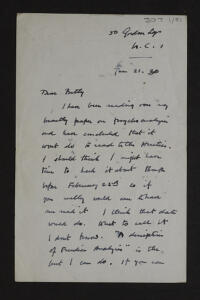 50 Gordon Sq
W.C.1
Jan 21. 30
Dear Betty
I have been reading over my
paper on psychoanalysis
and have concluded that it
won't do to read to the
I should think I might have
time to hack it about
before February 25th so if
you really could
me read it I think that date
would do. What to call it
I don't know. "A description
of Analysis" is the
but I can do, if you can